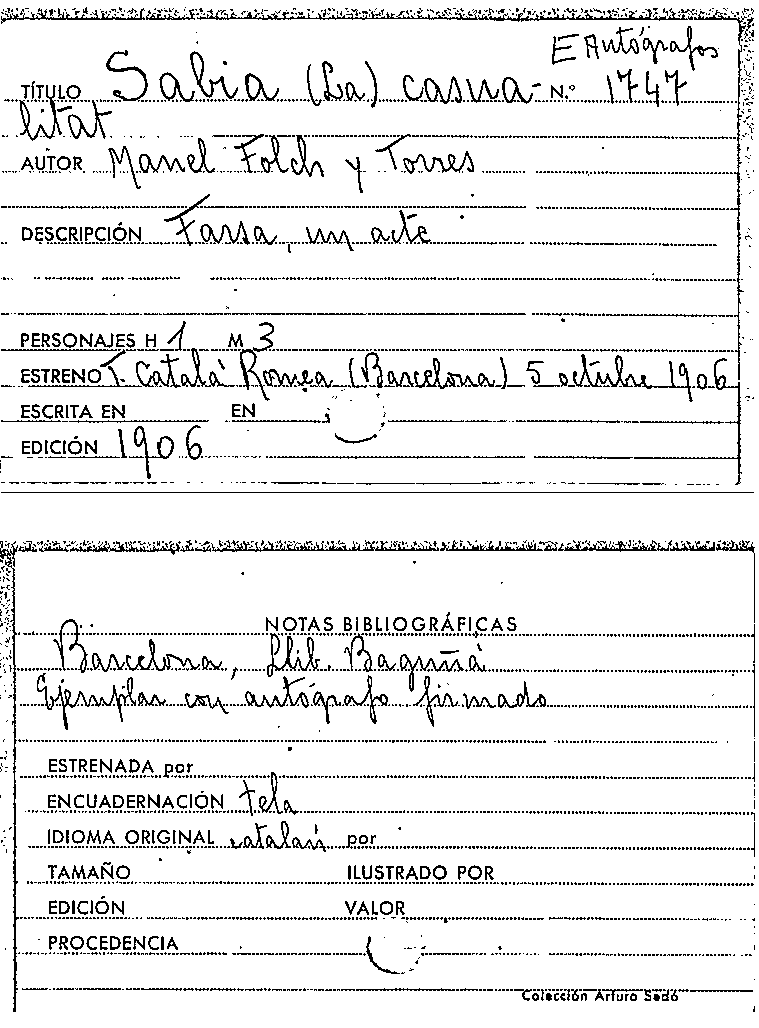 E Autógrafos
TÍTULO Sabia (La) casua- N.º 1747
litat
AUTOR Manel Folch y Torres
DESCRIPCIÓN Farsa, un acte
PERSONAJES H 1 M 3
ESTRENO T. Catalá Romea (Barcelona) 5 octubre 1906
ESCRITA EN EN
EDICIÓN 1906
NOTAS BIBLIOGRÁFICAS
Barcelona, Llib. Baguñá
Ejemplar con autógrafo firmado
ESTRENADA por
ENCUADERNACIÓN tela
IDIOMA ORIGINAL catalán por
TAMAÑO ILUSTRADO POR
EDICIÓN VALOR
PROCEDENCIA
Colección Arturo Sedó